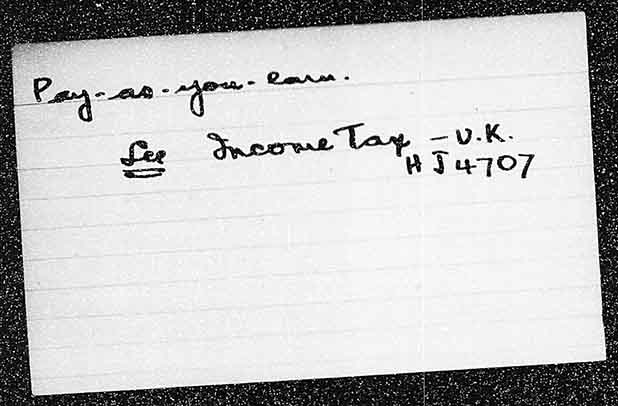 Pay-as-you-earn.
See Income Tax - U.K.
HJ4707